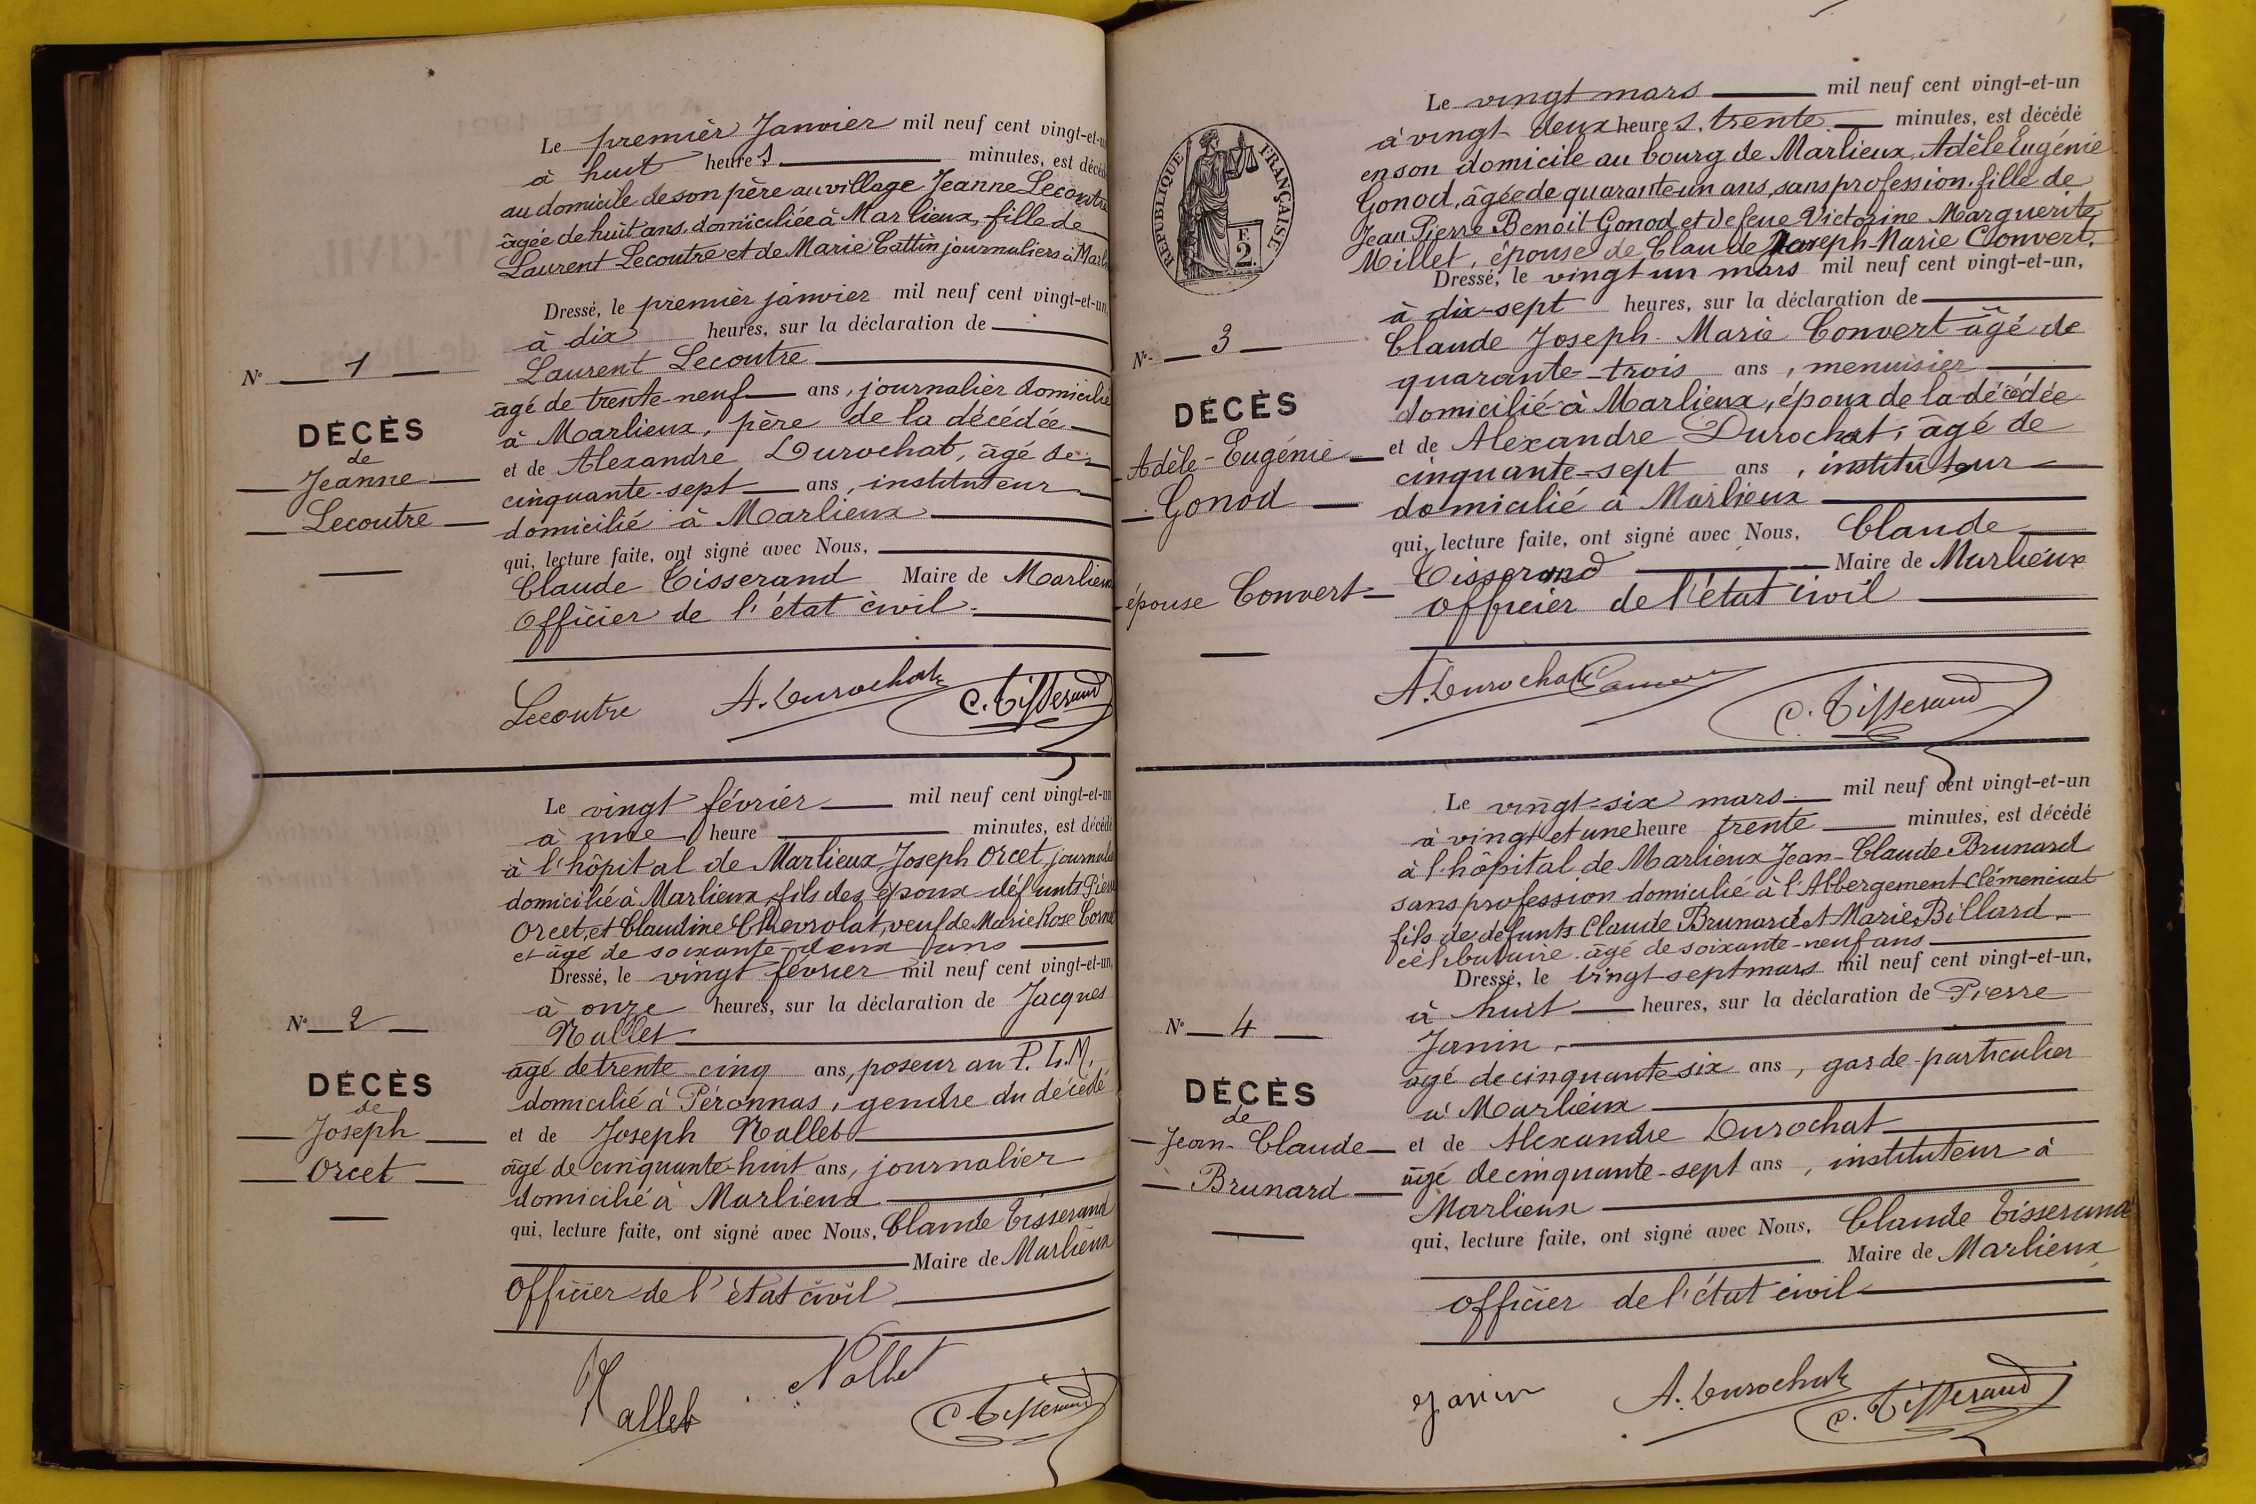 Le premier Janvier mil neuf cent vingt-et-u
à huit heures minutes, est décéd
au domicile de son père au village Jeanne Lecoutre
âgée de huit ans, domiciliée à Marlieux, fille de
Laurent Lecoutre et de Marie Cattin journaliers à Marl
Dressé, le premier janvier mil neuf cent vingt-et-un,
à dix heures, sur la déclaration de
Laurent Lecoutre
âgé de trente-neuf ans, journalier domicilié
à Marlieux, père de la décédée
et de Alexandre Durochat, âgé de
cinquante-sept ans, instituteur
domicilié à Marlieux
qui, lecture faite, ont signé avec Nous,
Claude Tisserand Maire de Marlieux
Officier de l'état civil.
N° 1
DÉCÈS
de
Jeanne
Lecoutre
Lecoutre A. Durochat C. Tisserand
Le vingt février mil neuf cent vingt-et-un
à une heure minutes, est décédé
à l'hôpital de Marlieux Joseph Orcet, journali
domicilié à Marlieux, fils des époux défunts Pierre
Orcet, et Claudine Chevrolat, veuf de Marie Rose
et âgé de soixante-deux ans
Dressé, le vingt février mil neuf cent vingt-et-un,
à onze heures, sur la déclaration de Jacques
Nallet
âgé de trente cinq ans, poseur au P. L. M.
domicilié à Péronnas, gendre du décédé
et de Joseph Nallet
âgé de cinquante-huit ans, journalier
domicilié à Marlieux
qui, lecture faite, ont signé avec Nous, Claude Tisserand
Maire de Marlieux
Officier de l'état civil
N° 2
DÉCÈS
de
Joseph
Orcet
Nallet Nallet C. Tisserand
RÉPUBLIQUE FRANÇAISE
F.
2.
Le vingt mars mil neuf cent vingt-et-un
à vingt-deux heures, trente minutes, est décédé
en son domicile au bourg de Marlieux, Adèle Eugénie
Gonod, âgée de quarante-un ans, sans profession, fille de
Jean Pierre Benoit Gonod et de feue Victorine Marguerite
Millet, épouse de Claude Joseph-Marie Convert.
Dressé, le vingt un mars mil neuf cent vingt-et-un,
à dix-sept heures, sur la déclaration de
Claude Joseph-Marie Convert âgé de
quarante-trois ans, menuisier
domicilié à Marlieux, époux de la décédée
et de Alexandre Durochat, âgé de
cinquante-sept ans, instituteur
domicilié à Marlieux
qui, lecture faite, ont signé avec Nous, Claude
Tisserand Maire de Marlieux
Officier de l'état civil
N° 3
DÉCÈS
Adèle-Eugénie
Gonod
épouse Convert
A. Durochat C. Tisserand
Le vingt-six mars mil neuf cent vingt-et-un
à vingt et une heure trente minutes, est décédé
à l'hôpital de Marlieux Jean-Claude Brunard
sans profession domicilié à l'Abbergement-Clémenciat
fils de défunts Claude Brunard et Marie Billard
célibataire, âgé de soixante-neuf ans
Dressé, le vingt-sept mars mil neuf cent vingt-et-un,
à huit heures, sur la déclaration de Pierre
Janin
âgé de cinquante-six ans, garde-particulier
à Marlieux
et de Alexandre Durochat
âgé de cinquante-sept ans, instituteur à
Marlieux
qui, lecture faite, ont signé avec Nous, Claude Tisserand
Maire de Marlieux
Officier de l'état civil
N° 4
DÉCÈS
de
Jean-Claude
Brunard
Janin A. Durochat C. Tisserand